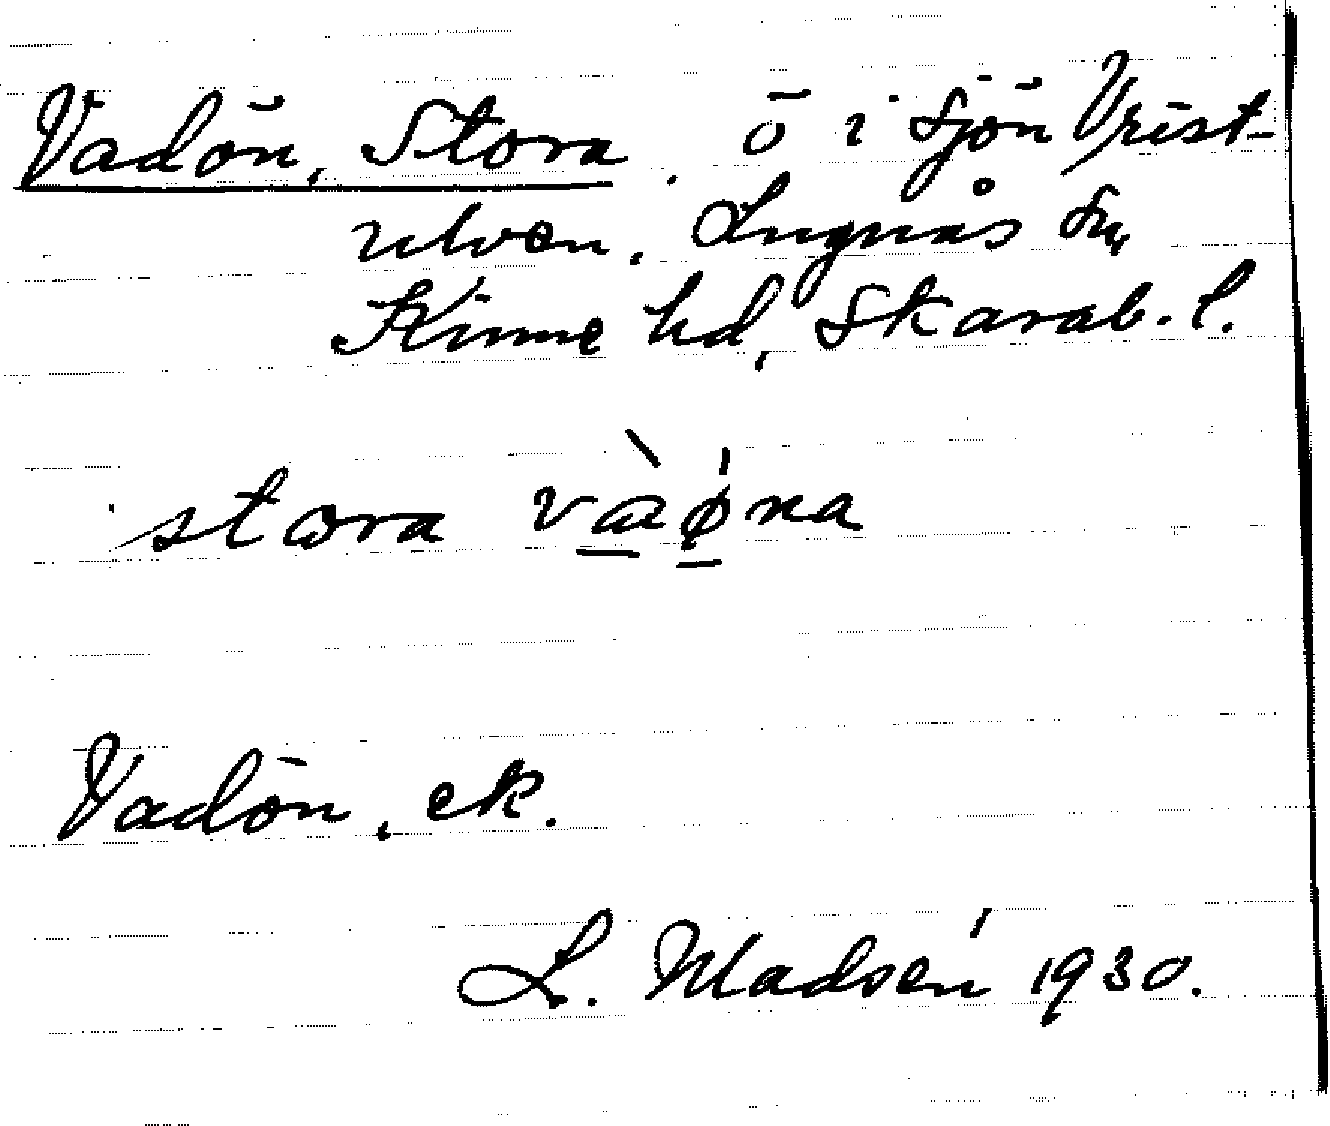 Vadön, Stora. ö i sjön Vrist-
ulven. Lugnås sn,
Kinne hd, Skarab. l.
stora vàøna
Vadön, ek.
L. Madsén 1930.